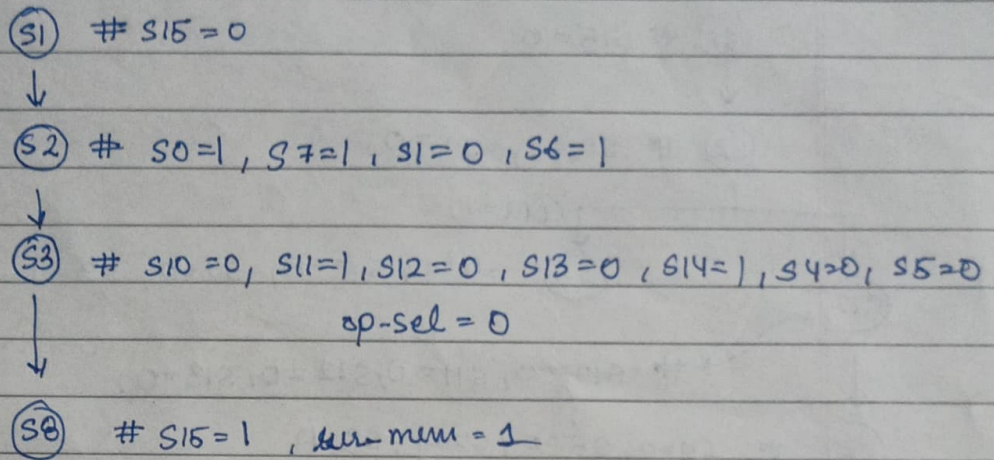 S1 # S15=0
↓
S2 # S0=1, S7=1, S1=0, S6=1
↓
S3 # S10=0, S11=1, S12=0, S13=0, S14=1, S4=0, S5=0
op-sel = 0
↓
S8 # S15=1, mem = 1